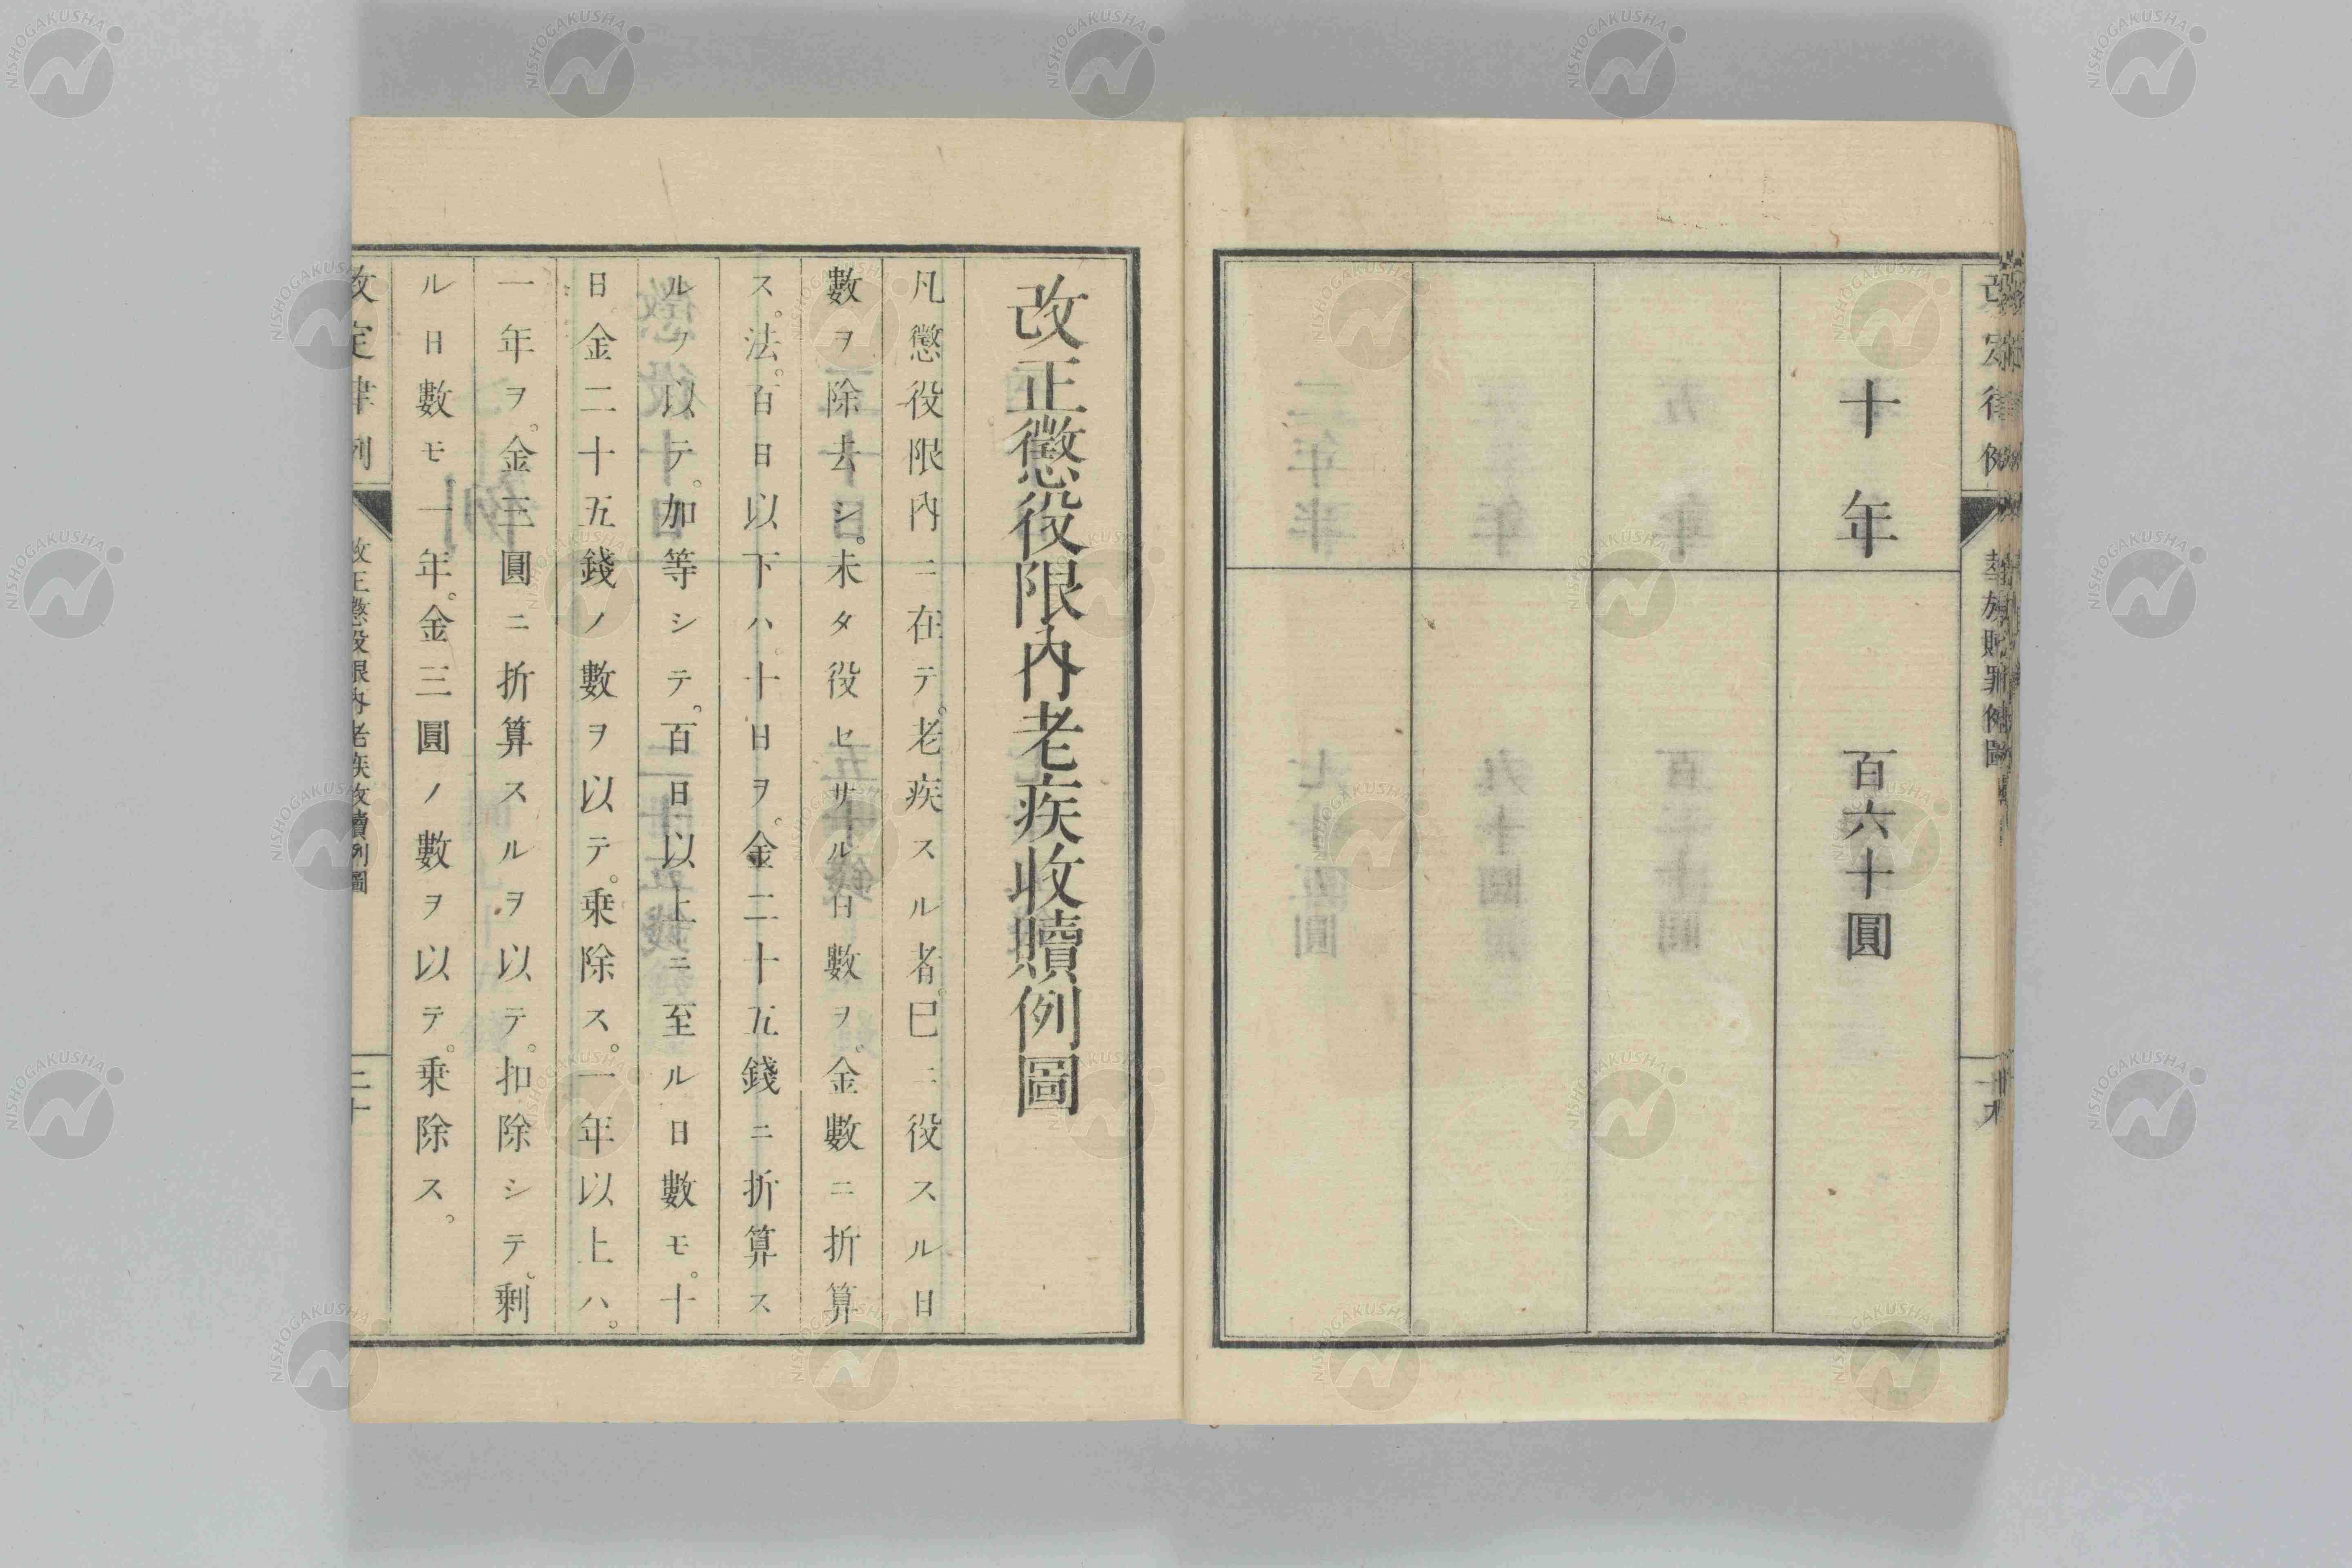 改定律例
華族贖罪例圖
十九
十年
百六十圓
改正懲役限內老疾收贖例圖
凡懲役限內ニ在テ。老疾スル者。巳ニ役スル日
數ヲ除去シ。未タ役セサル日數ヲ。金數ニ折算
ス。法。百日以下ハ。十日ヲ。金二十五錢ニ折算ス
ルヲ以テ。加等シテ。百日以上ニ至ル日數モ。十
日金二十五錢ノ數ヲ以テ。乗除ス。一年以上ハ。
一年ヲ。金三圓ニ折算スルヲ以テ。扣除シテ。剩
ル日數モ一年。金三圓ノ數ヲ以テ。乗除ス。
改定律例
改正懲役限內老疾收贖例圖
二十
NISHOGAKUSHA